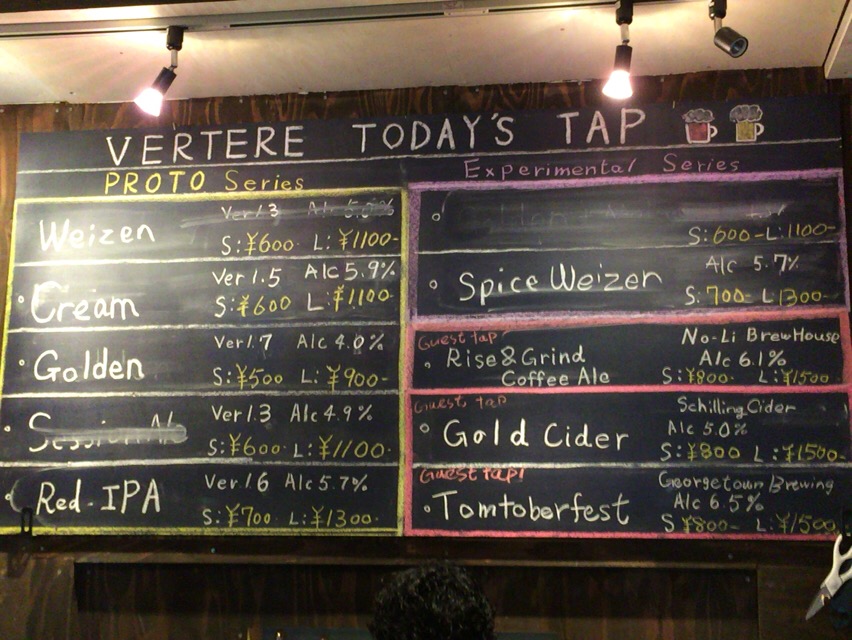 VERTERE TODAY'S TAP
PROTO Series
Weizen
Ver1.3
S:¥600 L:¥1100-
Cream
Ver1.5 Alc5.9%
S:¥600 L:¥1100-
Golden
Ver1.7 Alc 4.0%
S:¥500 L:¥900-
Session
Ver1.3 Alc4.9%
S:¥600 L:¥1100-
Red-IPA
Ver.16 Alc5.7%
S:¥700 L:¥1300-
Experimental Series
S:600- L:1100-
Spice Weizen
Alc 5.7%
S:700- L1300-
Guest tap
Rise&Grind
Coffee Ale
No-Li BrewHouse
Alc 6.1%
S:¥800- L:¥1500
Guest tap
Gold Cider
Schilling Cider
Alc 5.0%
S:¥800 L:¥1500-
Guest tap!
Tomtoberfest
Georgetown Brewing
Alc 6.5%
S ¥800- L:¥1500